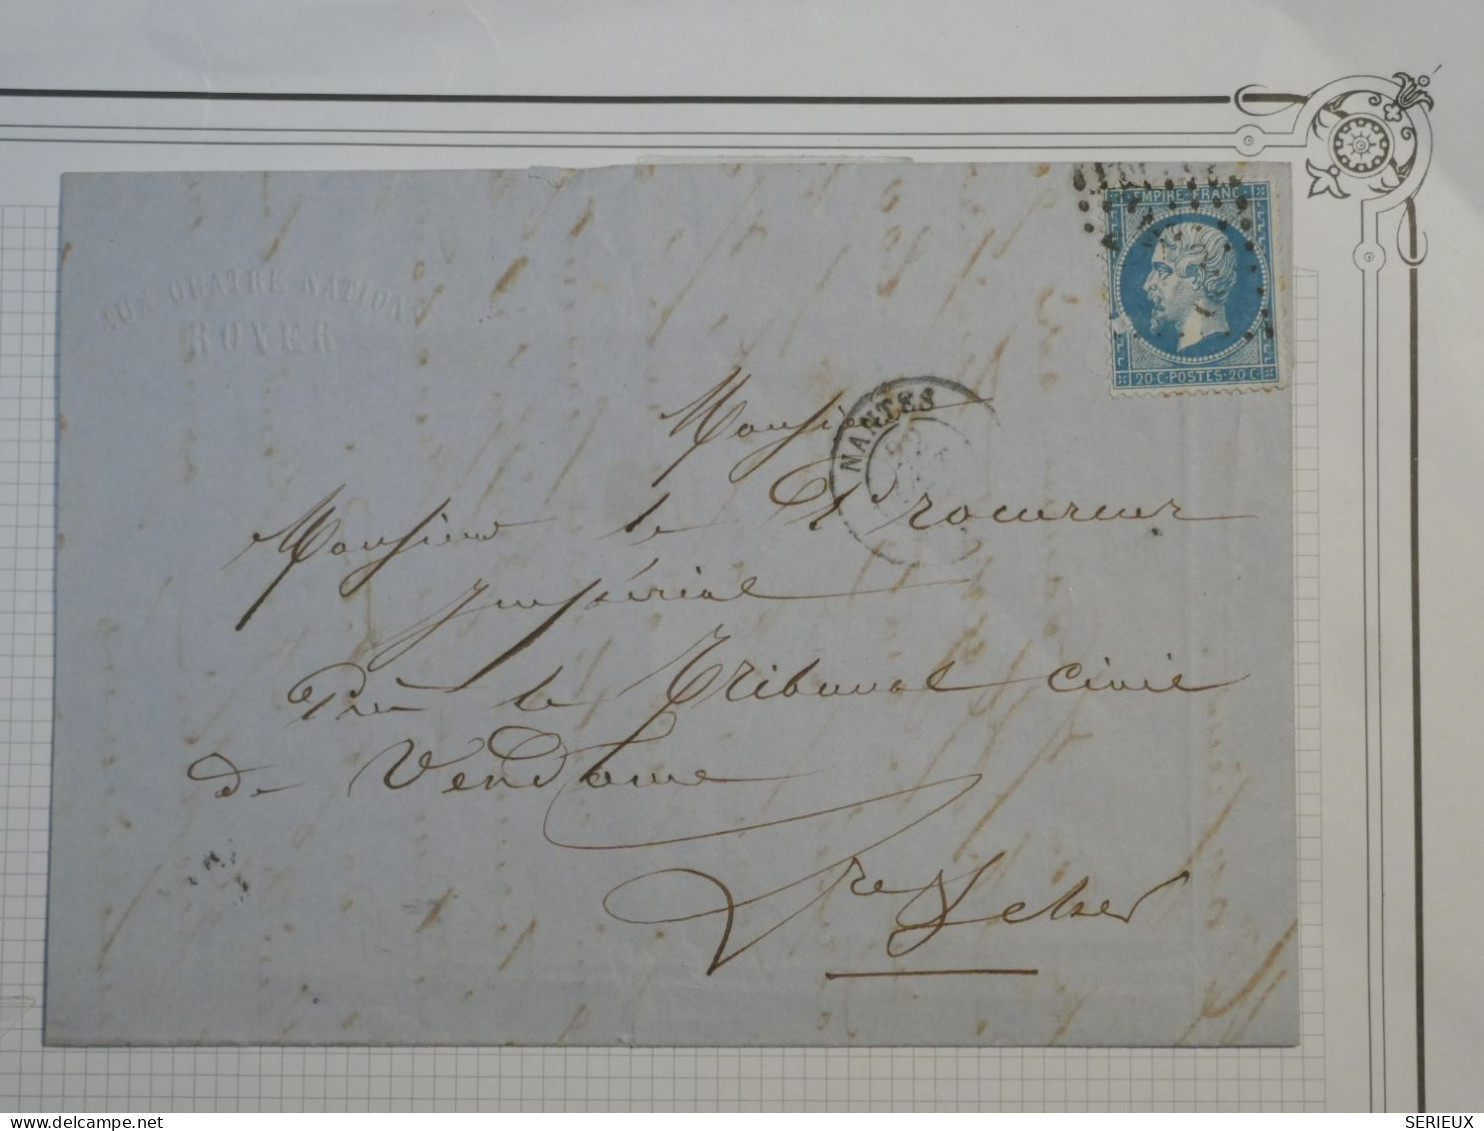 AUX QUATRE NATIONS
ROYER
EMPIRE FRANC
20 C POSTES 20 C
NANTES
Monsieur
Monsieur le Procureur
Impérial
Près le Tribunal civil
de Vendome
Cher
delcampe.net
SERIEUX